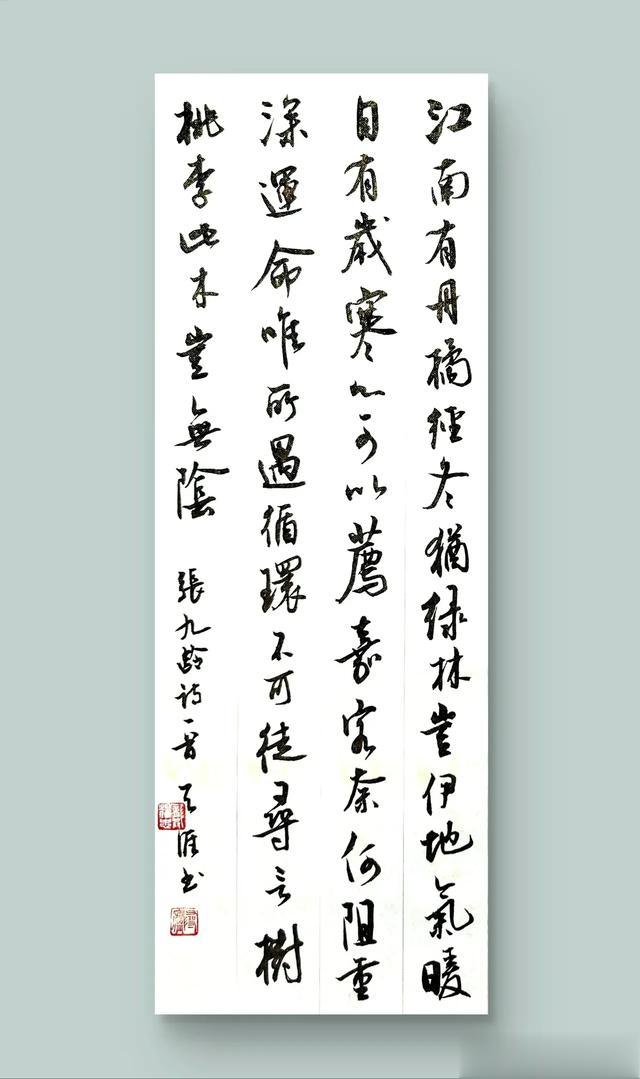 江南有丹橘經冬猶緑林豈伊地氣暖
自有歲寒心可以薦嘉客奈何阻重
深運命唯所遇循環不可徒尋言樹
桃李此木豈無陰 張九齡詩一首 天涯書